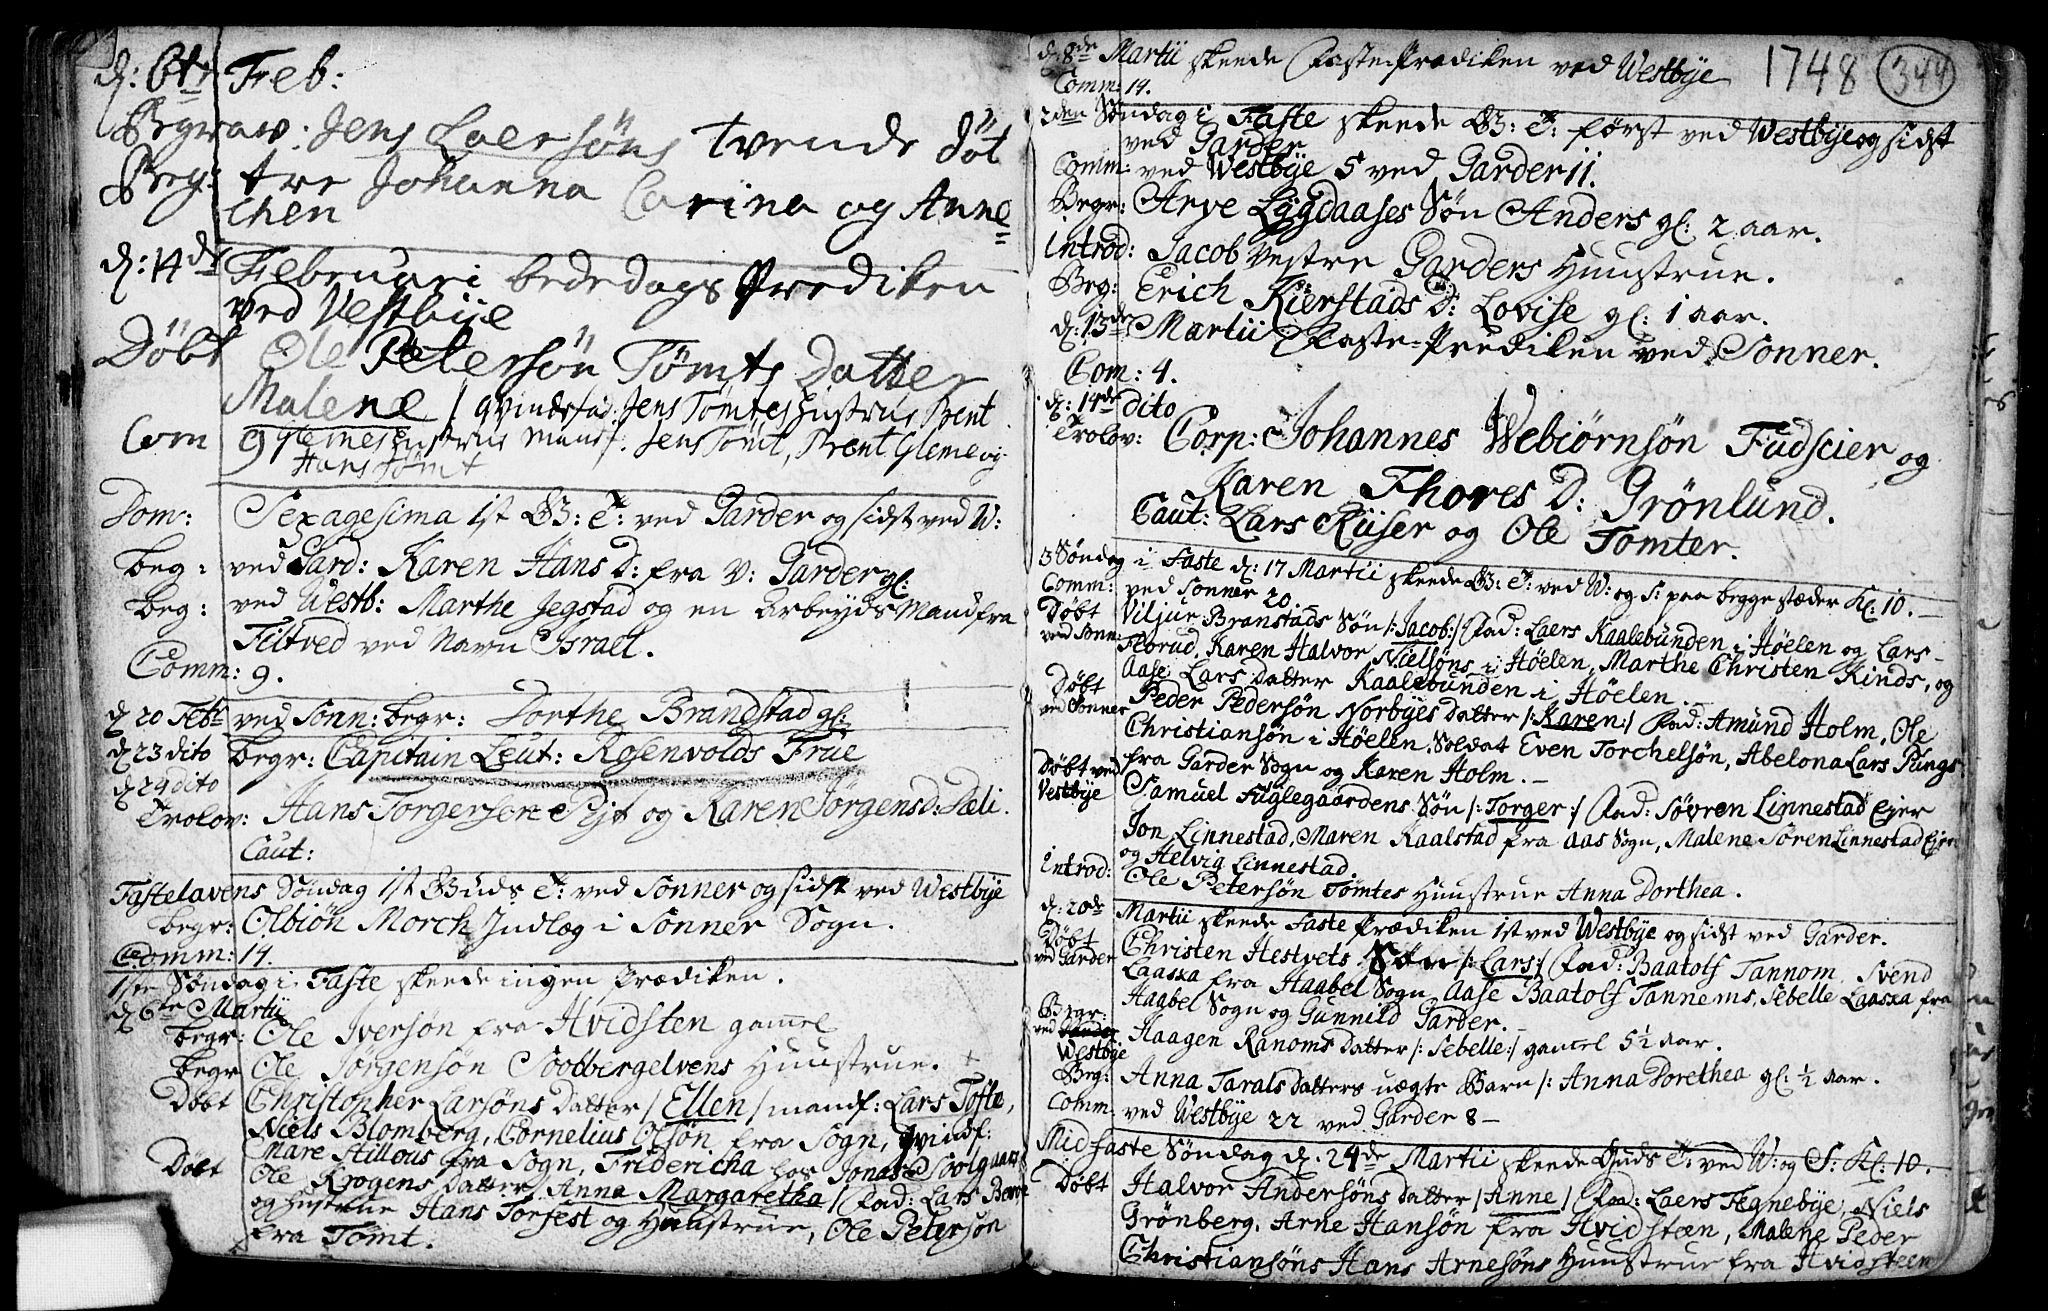 d: 6te Feb:
Begrav: Jens Laersöns tvende Döt
Beg: tre Johanna Carina og Anne=
chen
d: 14de Februari bededags Prediken
ved Vestbÿe
Döbt Ole Petersön Tömts Datter
Malene / qvindfad: Jens Tömtes Hustrue Brent
Com 9 Glemes Hustrue Mandf: Jens Tömt, Brent Gleme og
Hans Tömt
Dom: Sexagesima 1st G: T: ved Garder og sidst ved W:
beg: ved Gard: Karen Hans D: fra V: Garder gl:
beg: ved Westb: Marthe Jegstad og en Arbeÿds Mand fra
Filtved ved Navn Israel.
Comm: 9.
d 20 Febr ved Sonn: begr: Dorthe Brandstad gl:
d 23 dito begr: Capitain Leut: Rosenvolds Frue
d 24 dito
Trolov: Hans Torgersen og Karen Jörgens D: Sæli.
Caut:
Fastelavens Söndag 1st Guds T: ved Sonner og sidst ved Westbÿe
begr: Olbiön Morch Indlæg i Sonner Sogn.
Comm: 14.
1ste Söndag i Faste skeede ingen Prædiken.
d 6te Martii
begr: Ole Iversön fra Hvidsten gamel
begr Ole Jörgensön Soobergelvens Huustrue. +
Döbt Christopher Larsöns Datter / Ellen / mandf: Lars Tofte,
Niels Blomberg, Cornelius Olsön fra Sogn, Qvindf:
Mare Hillous fra Sogn, Fridericha hos Jonas Soolgaard
Döbt Ole Krogens Datter / Anna Margaretha / Fad: Lars
og Hustrue Hans Torfest og Huustrue, Ole Petersön
fra Tömt.
d: 8de Martii skeede Faste-Prædiken ved Westbÿe 1748 344
Comm: 14.
2den Söndag i Faste skeede G: T: först ved Westbÿe og sidst
ved Garder
Comm: ved Westbÿe 5 ved Garder 11.
Begr: Arve Lÿgdaases Sön Anders gl: 2 aar.
Introd: Jacob Vestre Garders Huustrue.
Beg: Erich Kierstads D: Lovise gl: 1 aar.
d: 13de Martii Faste-Prediken ved Sonner.
Com: 4.
d: 14de dito
Trolov: Corp: Johannes Webiörnsön Fudscier og
Karen Thores D: Grönlund.
Caut: Lars Rüser og Ole Tomter.
3 Söndag i Faste d: 17 Martii skeede G: T: ved W: og S: paa begge stæder Kl: 10.
Comm: ved Sonner 20
Döbt ved Sonn: Viljur Branstads Sön /: Jacob :/ Fad: Laers Kaalebunden i Höelen og Lars
Februd, Karen Halvor Nielsöns i Höelen, Marthe Christen Kinds, og
Aase Lars Datter Kaalebunden i Höelen.
Döbt ved Sonner Peder Pedersön Norbÿes Datter /: Karen :/ Fad: Amund Holm, Ole
Christiansön i Höelen, Soldat Even Torchelsön, Abelona Lars Pungs
fra Garder Sogn og Karen Holm.
Döbt ved Vestbÿe Samuel Fuglegaardens Sön /: Torger :/ Fad: Sövren Linnestad Ejer
Jon Linnestad, Maren Kaalstad fra Aas Sogn, Malene Sören Linnestad Ejer
og Helvig Linnestad.
Introd: Ole Petersön Tömtes Huustrue Anna Dorthea.
d: 20de Martii skeede Faste Prædiken 1st ved Westbÿe og sidst ved Garder.
Döbt ved Garder Christen Hestvets Sön /: Lars :/ Fad: Baatolf Tannom, Svend
Laaska fra Haabel Sogn, Aase Baatolf Tannems, Sebelle Laaska fra
Haabel Sogn og Gunnild Garder.
Begr: ved Westbÿe Haagen Ranoms Datter /: Sebelle :/ gamel 5½ aar.
Beg: Anna Tarals Datters uægte Barn /: Anna Dorethea gl: ½ aar.
Comm ved Westbÿe 22 ved Garder 8
Midfaste Söndag d: 24de Martii skeede Guds T: ved W: og S: Kl: 10.
Döbt Halvor Andersöns Datter / Anne / Fad: Laers Tegnebÿe, Niels
Grönberg, Arne Hansön fra Hvidsteen, Malene Peder
Christiansöns Hans Arnesöns Huustrue fra Hvidsteen